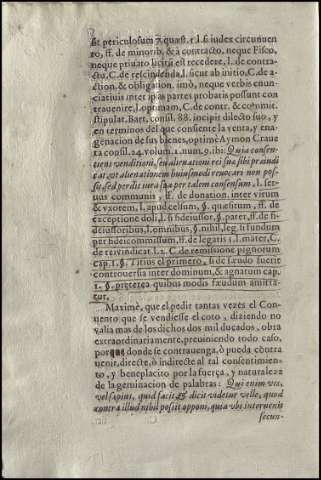 Et periculosum 7. quæst. 1. l. si iudex circunuen
to, ff. de minorib. & à contracto, neque Fisco,
neque priuato licitũ est recedere, l. de contra-
ctu, C. de rescindenda, l. sicut ab initio, C. de a-
ction. & obligation. imò, neque verbis enun-
ciatiuis inter ipsas partes probatis possunt con
trauenire, l. optimam, C. de contr. & commit.
stipulat. Bart. consil. 88. incipit dilecto suo, y
en terminos del que consiente la venta, y ena-
genacion de sus bienes, optimè Aymon Craue
ta consil. 24. volum. 1. num. 9. ibi: Quia consen-
tiens venditioni, seu alienationi rei suæ sibi præiudi
cat, vt alienationem huiusmodi reuocare non pos-
sit, sed perdit iura sua per talem consensum, l. ser-
uus communis, ff. de donation. inter virum
& vxorem, l. apud celsum, §. quæsitum, ff. de
exceptione doli, l. si fideiussor, §. pater, ff. de fi-
deiussoribus, l. omnibus, §. nihil, leg. si fundum
per fideicommissum, ff. de legatis 1. l. mater, C.
de reivindicat. l. 2. C. de remissione pignorum
cap. 1. §. Titius el primero, si de fæudo fuerit
controuersia inter dominum, & agnatum cap.
1. §. præterea quibus modis fæudum amitta-
tur.
Maximè, que el pedir tantas vezes el Con-
uento que se vendiesse el coto, diziendo no
valia mas de los dichos dos mil ducados, obra
extraordinariamente, preuiniendo todo caso,
porque donde se contrauenga, ò pueda contra
uenir, directè, ò indirectè al tal consentimien-
to, y beneplacito por la fuerça, y naturaleza
de la geminacion de palabras: Qui enim vno,
vel sæpius, quid facit & dicit videtur velle, quod
contra illud nihil possit opponi, quia vbi interuenit
secun-